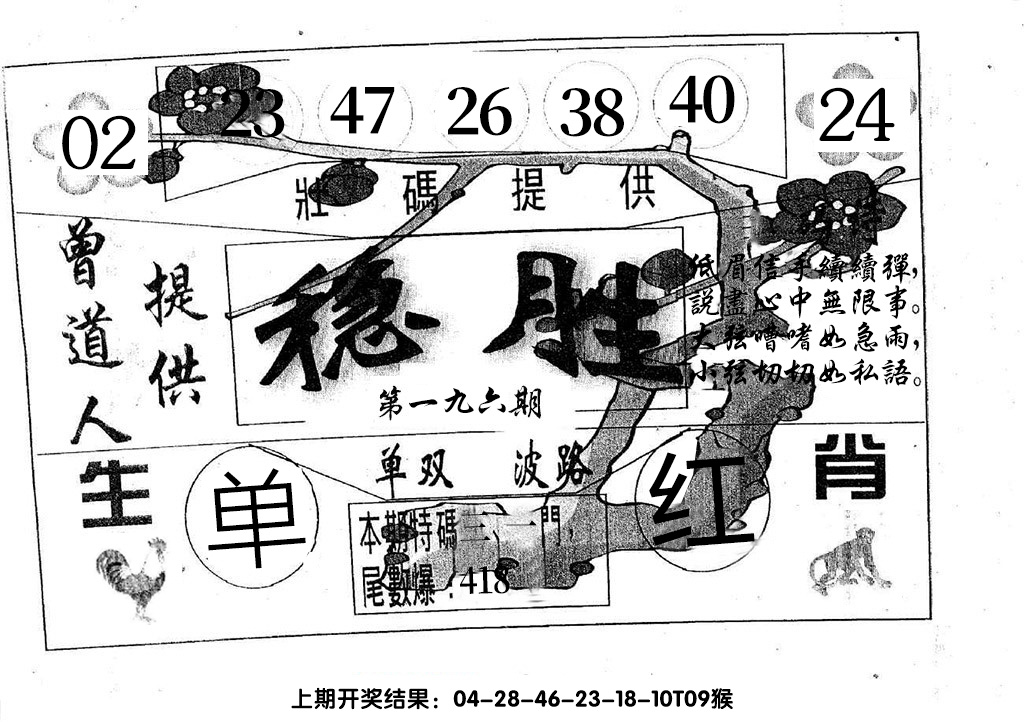 02 23 47 26 38 40 24
壯碼提供
曾道人
提供
稳胜
第一九六期
特
低眉信手續續彈，
説盡心中無限事。
大弦嘈嘈如急雨，
小弦切切如私語。
单双 波路
生 肖
单 红
本期特碼三、一門，
尾數爆：418
上期开奖结果：04-28-46-23-18-10T09猴